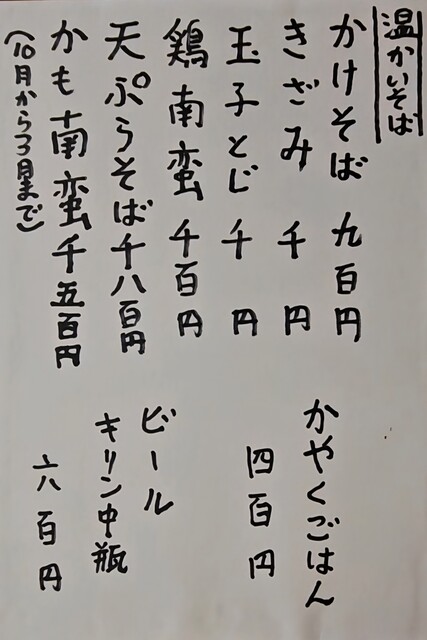 温かいそば
かけそば 九百円
きざみ 千円
玉子とじ 千円
鶏南蛮 千百円
天ぷらそば 千八百円
かも南蛮 千五百円
(10月から3月まで)
かやくごはん
四百円
ビール
キリン中瓶
六百円